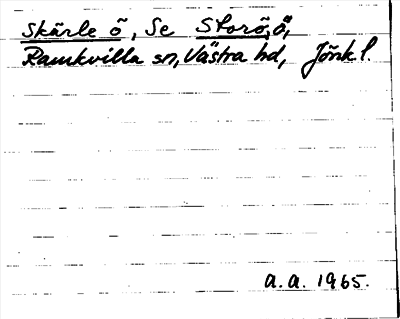 Skärle ö, Se Storö, ö,
Ramkvilla sn, Västra hd, Jönk l.
a.a. 1965.